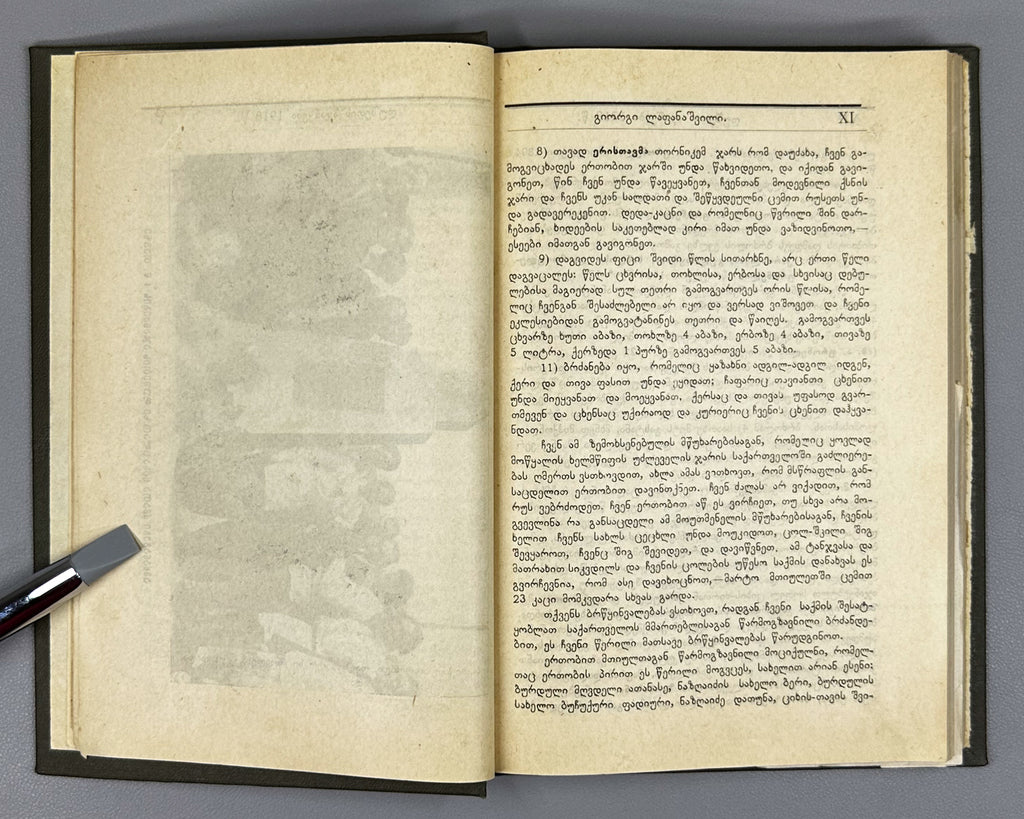 გიორგი ლაფანაშვილი. XI
8) თავად ერისთავმა თორნიკემ ჯარს რომ დაუძახა, ჩვენ გა-
მოგვიცხადეს ერთობით ჯარში უნდა წახვიდეთო, და იქიდან გავი-
გონეთ, წინ ჩვენ უნდა წავეყვანეთ, ჩვენთან მოდევნილი ქსნის
ჯარი და ჩვენს უკან სალდათი და შეწყვდეულნი ცემით რუსეთს უნ-
და გადავერეკენით. დედა-კაცნი და რომელნიც წვრილი შინ დარ-
ჩებიან, ხიდეების საკეთებლად კირი იმათ უნდა ვაზიდვინოთო,—
ესეები იმათგან გავიგონეთ.
9) დაგვიდეს ფიცი შვიდი წლის სითარხნე, არც ერთი წელი
დაგვაცალეს: წელს ცხვრისა, თოხლისა, ერბოსა და სხვისაც დებუ-
ლებისა მაგიერად სულ თეთრი გამოგვართვეს ორის წლისა, რომე-
ლიც ჩვენგან შესაძლებელი არ იყო და ვერსად ვიშოვეთ და ჩვენი
ეკლესიებიდან გამოგვატანინეს თეთრი და წაიღეს. გამოგვართვეს
ცხვარზე ხუთი აბაზი, თოხლზე 4 აბაზი, ერბოზე 4 აბაზი, თივაზე
5 ლიტრა, ქერზედა 1 პურზე გამოგვართვეს 5 აბაზი.
11) ბრძანება იყო, რომელიც ყაზახნი ადგილ-ადგილ იდგენ,
ქერი და თივა ფასით უნდა ეყიდათ; ჩაფარიც თავიანთი ცხენით
უნდა მიეყვანათ და მოეყვანათ. ქერსაც და თივას უფასოდ გვარ-
თმევენ და ცხენსაც უქირაოდ და კურიერიც ჩვენის ცხენით დაჰყვა-
ნდათ.
ჩვენ ამ ზემოხსენებულის მწუხარებისაგან, რომელიც ყოვლად
მოწყალის ხელმწიფის უძლეველის ჯარის საქართველოში გაძლიერე-
ბას ღმერთს ვსთხოვდით, ახლა ამას ვითხოვთ, რომ მსწრაფლის გან-
საცდელით ერთობით დავინთქნეთ. ჩვენ ძალას არ ვიქადით, რომ
რუს ვებრძოდეთ. ჩვენ ერთობით აწ ეს ვირჩიეთ, თუ სხვა არა მო-
გვევლინა რა განსაცდელი ამ მოუთმენელის მწუხარებისაგან, ჩვენის
ხელით ჩვენს სახლს ცეცხლი უნდა მოუკიდოთ, ცოლ-შვილი შიგ
შევყაროთ, ჩვენც შიგ შევიდეთ, და დავიწვნეთ. ამ ტანჯვასა და
მათრახით სიკვდილს და ჩვენის ცოლების უწესო საქმის დანახვას ეს
გვირჩევნია, რომ ასე დავიხოცნოთ,—მარტო მთიულეთში ცემით
23 კაცი მომკვდარა სხვას გარდა.
თქვენს ბრწყინვალებას ვსთხოვთ, რადგან ჩვენი საქმის შესატ-
ყობლათ საქართველოს მმართებლისაგან წარმოგზავნილი ბრძანდე-
ბით, ეს ჩვენი წერილი მათსავე ბრწყინვალებას წარუდგინოთ.
ერთობით მთიულთაგან წარმოგზავნილი მოციქულნი, რომელ-
თაც ერთობის პირით ეს წერილი მოგვცეს, სახელით არიან ესენი:
ბურდული მღვდელი ათანასე, ნაზღაიძის სახელო ბერი, ბურდულის
სახელო ბუჩუქური ფადიური, ნაზღაიძე დათუნა, ციხის-თავის შვი-